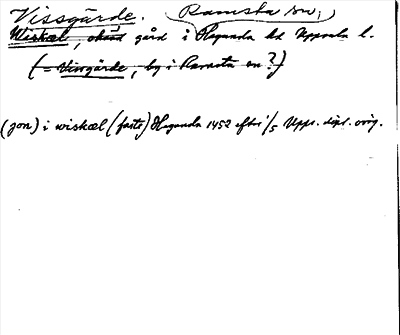 Vissgärde. Ramsta sn,
Wiskæl, okänd gård i Hagunda hd Uppsala l.
(= Vissgärde, by i Ramsta sn?)
(jon) i wiskæl (faste) Hagunda 1452 efter 1/5 Upps. dipl. orig.